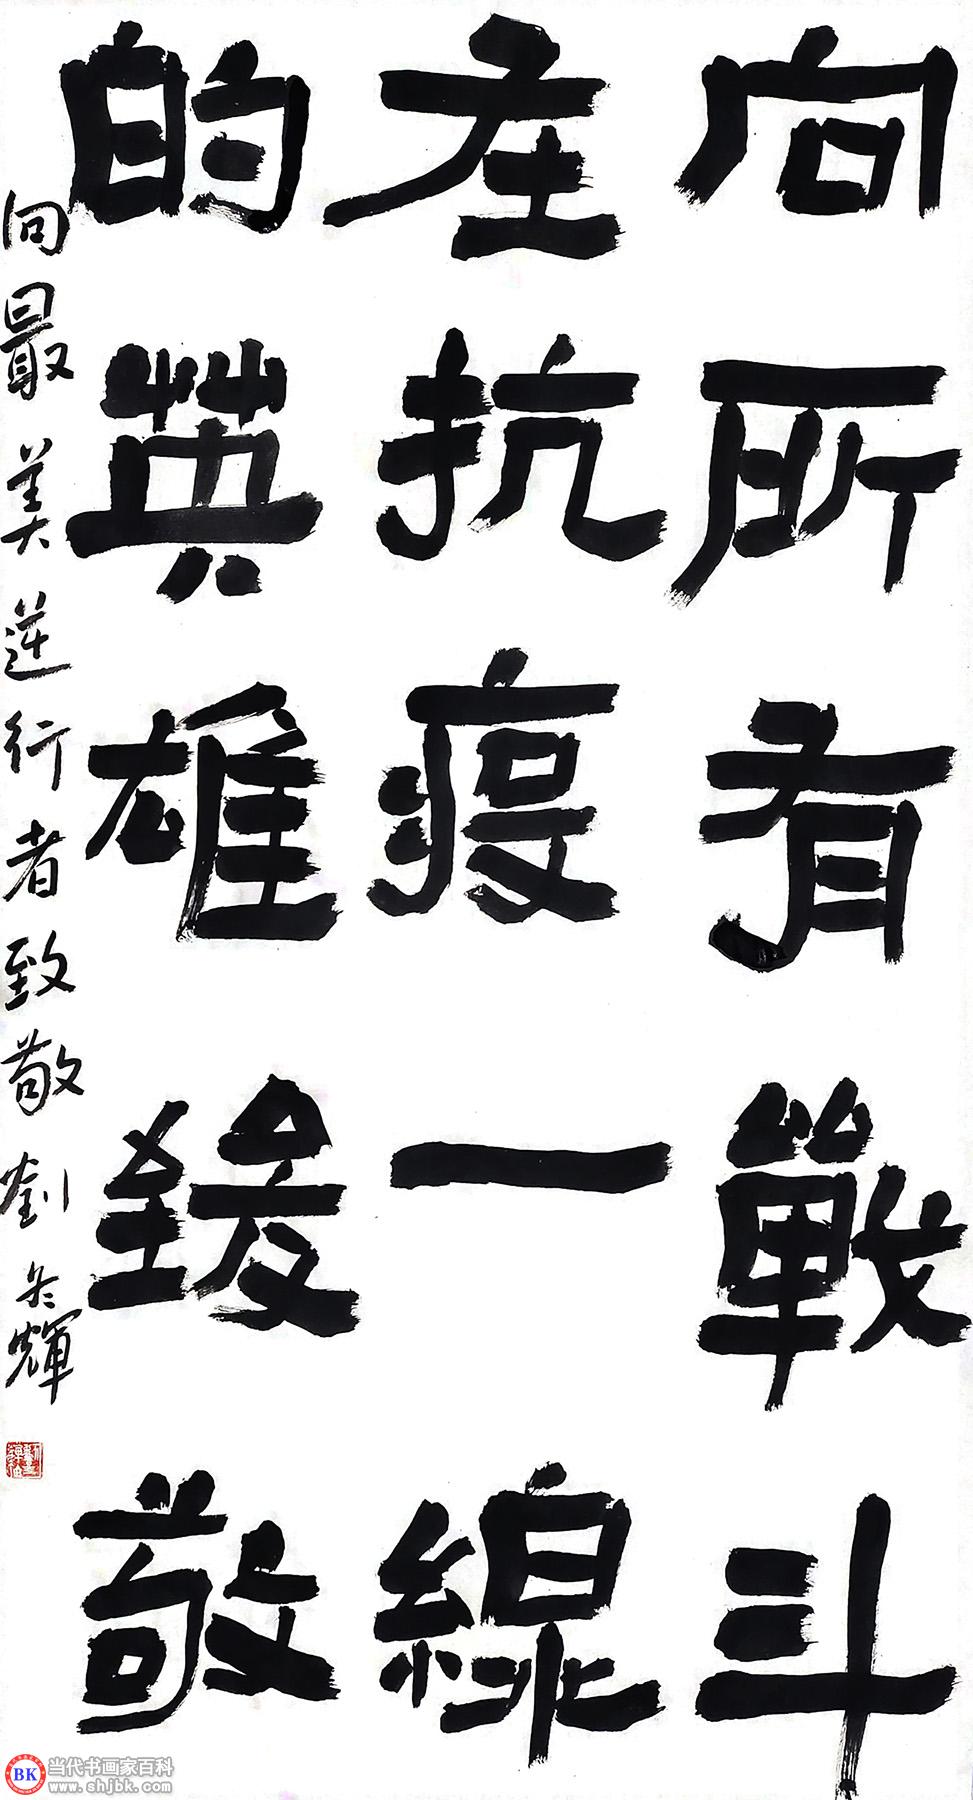 向所有戰斗
在抗疫一線
的英雄致敬
向最美逆行者致敬 劉冬輝
BK 当代书画家百科
www.shjbk.com